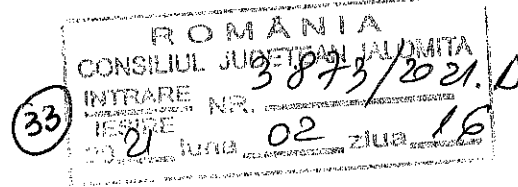 ROMÂNIA
CONSILIUL JUDEȚEAN IALOMIȚA
INTRARE NR. 3873/2021.
IEȘIRE
33
2021 luna 02 ziua 16